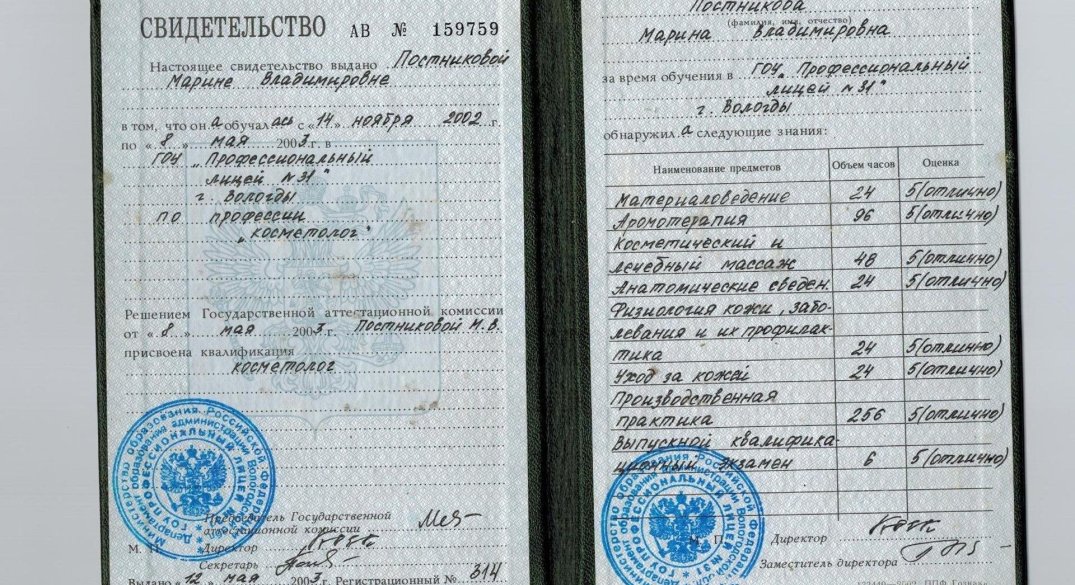 СВИДЕТЕЛЬСТВО АВ № 159759
Настоящее свидетельство выдано Постниковой
Марине Владимировне
в том, что он а обучал ась с «14» ноября 2002 г.
по «8» мая 2003 г. в
ГОУ „Профессиональный
лицей №31"
г. Вологды
по профессии
„косметолог"
Решением Государственной аттестационной комиссии
от «8» мая 2003 г. Постниковой М.В.
присвоена квалификация
косметолог
Председатель Государственной
аттестационной комиссии
М. П. Директор
Секретарь
Выдано «12» мая 2003 г. Регистрационный № 314
Постникова
(фамилия, имя, отчество)
Марина Владимировна
за время обучения в ГОУ „Профессиональный
лицей №31"
г. Вологды
обнаружил а следующие знания:
Наименование предметов Объем часов Оценка
Материаловедение 24 5(отлично)
Аромотерапия 96 5(отлично)
Косметический и
лечебный массаж 48 5(отлично)
Анатомические сведен. 24 5(отлично)
Физиология кожи, забо-
левания и их профилак-
тика 24 5(отлично)
Уход за кожей 24 5(отлично)
Производственная
практика 256 5(отлично)
Выпускной квалифика-
ционный экзамен 6 5(отлично)
М. П. Директор
Заместитель директора